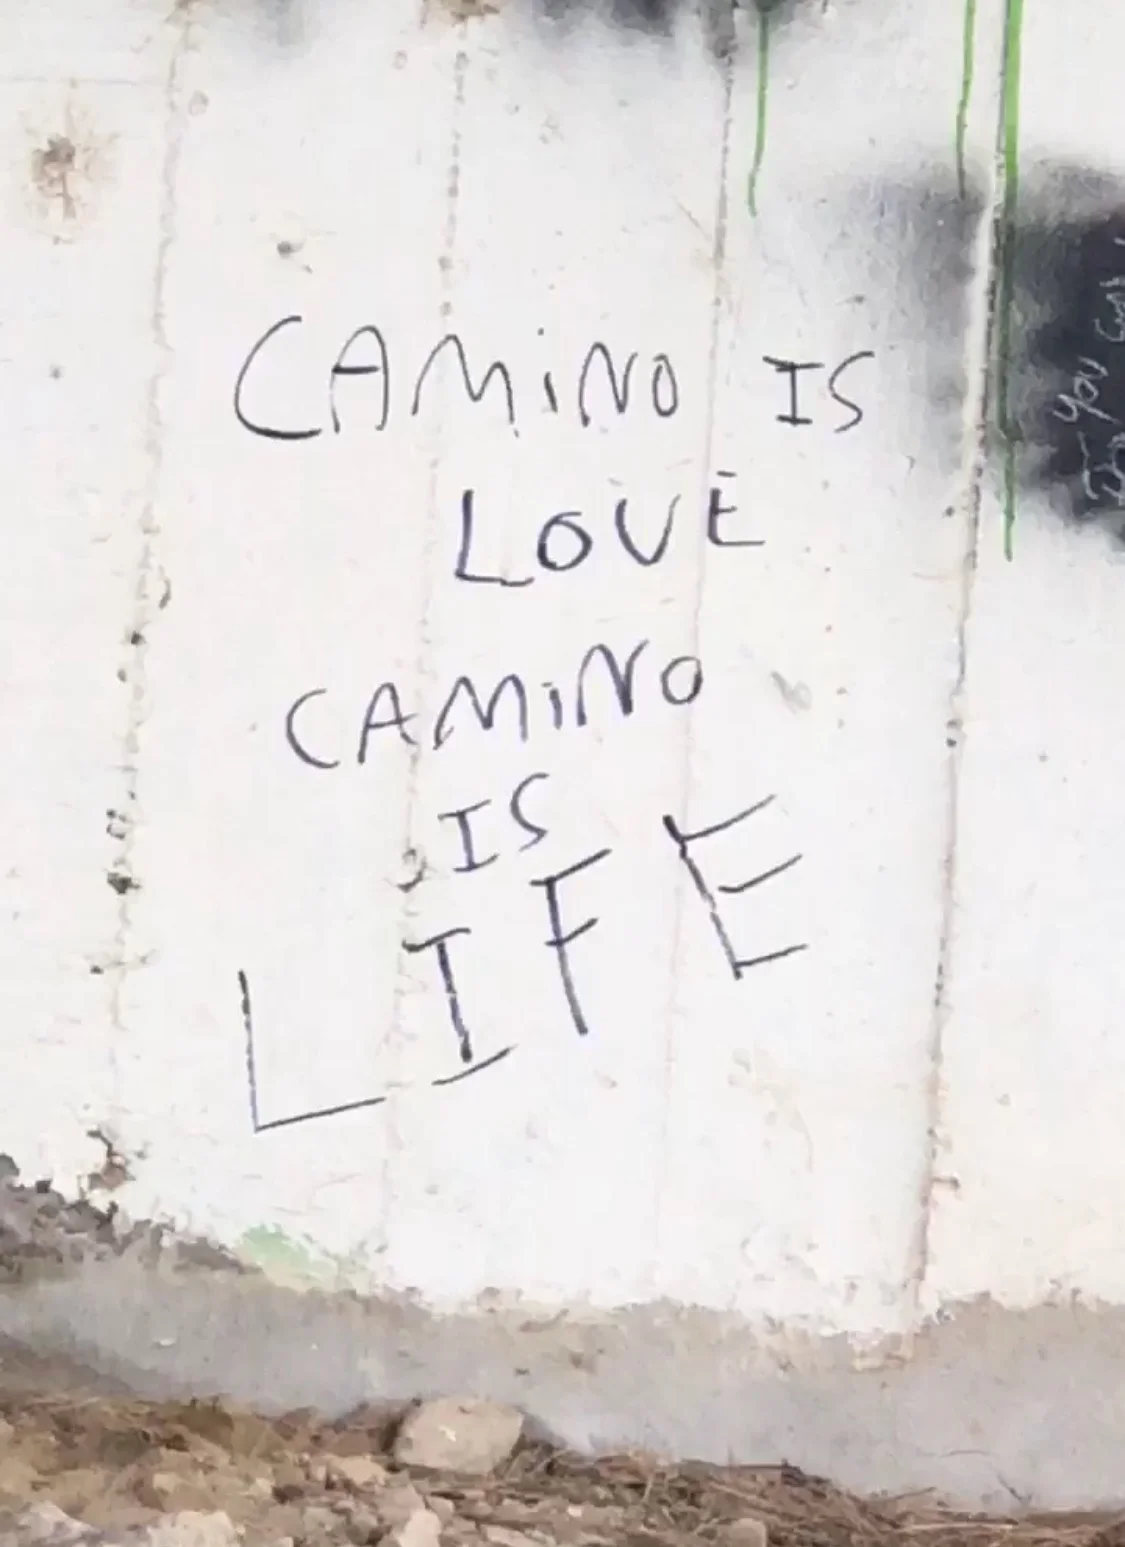 CAMiNO IS
LOVE
CAMiNO
IS
LIFE
you